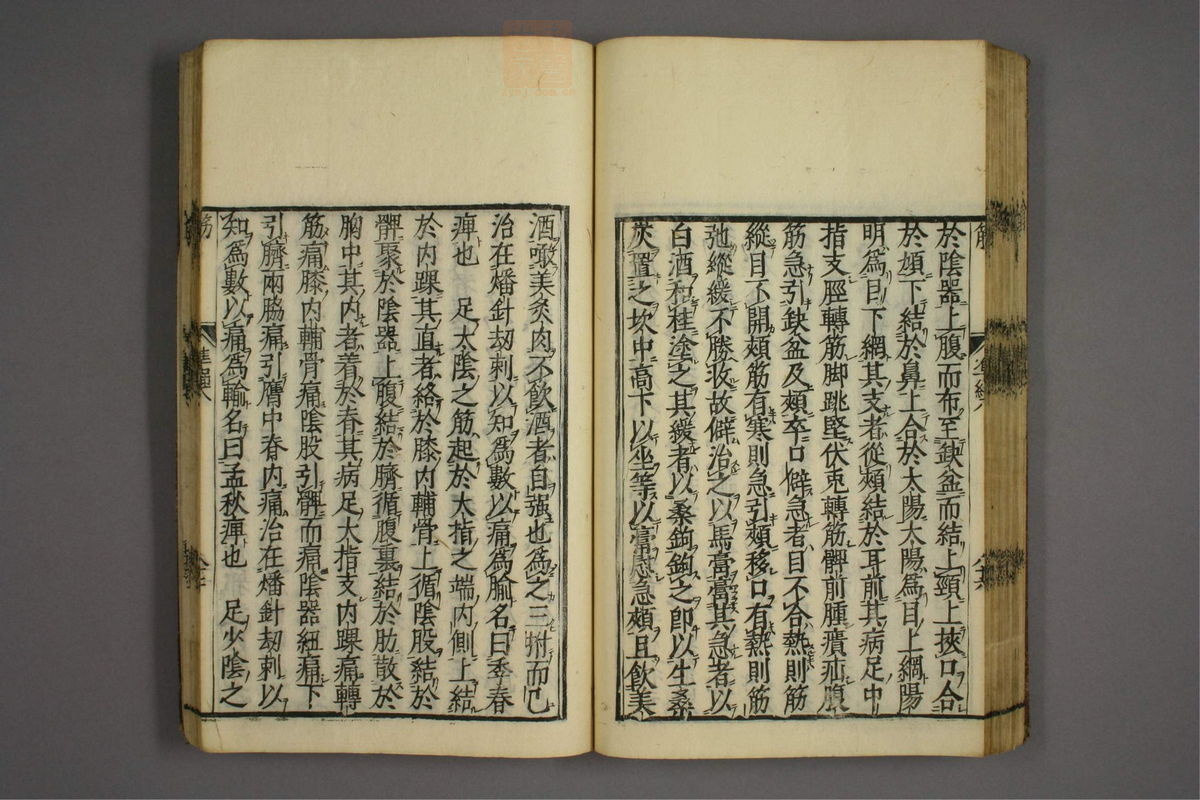 於陰器上腹而布至缺盆而結上頸上挾口合
於頄下結於鼻上合於太陽太陽爲目上綱陽
明爲目下綱其支者從頰結於耳前其病足中
指支脛轉筋脚跳堅伏兎轉筋髀前腫㿉疝腹
筋急引缺盆及頰卒口僻急者目不合熱則筋
縱目不開頰筋有寒則急引頰移口有熱則筋
弛縱緩不勝收故僻治之以馬膏膏其急者以
白酒和桂塗之其緩者以桑鉤鉤之即以生桑
灰置之坎中高下以坐等以膏慰急頰且飲美
酒噉美炙肉不飲酒者自强也爲之三拊而已
治在燔針劫刺以知爲數以痛爲腧名曰季春
痺也　足太陰之筋起於大指之端内側上結
於内踝其直者絡於膝内輔骨上循陰股結於
髀聚於陰器上腹結於臍循腹裏結於肋散於
胸中其内者着於脊其病足大指支内踝痛轉
筋痛膝内輔骨痛陰股引髀而痛陰器紐痛下
引臍兩脇痛引膺中脊内痛治在燔針劫刺以
知爲數以痛爲輸名曰孟秋痺也　足少陰之